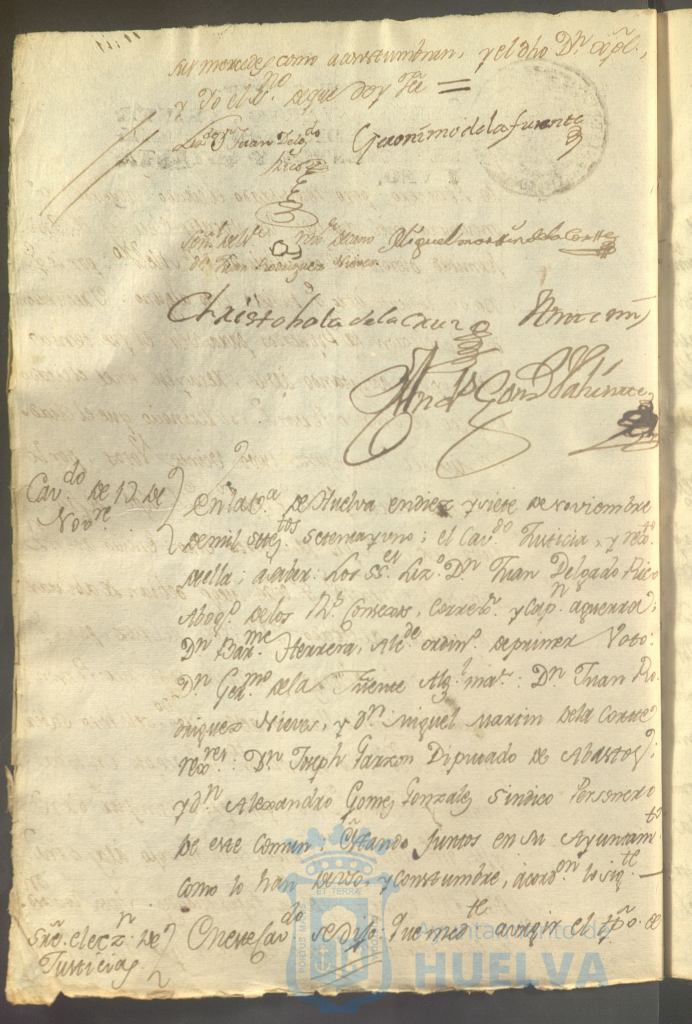 sus mercedes como acostumbran, y el dho Dn
y Yo el Sno de que doy Fee =
Lizdo Dn Juan Delgdo
Rico
Geronimo de la fuente
Dn Juan Rodriguez Nieves
Miguel martin de la Corte
Christobal de la Cruz
Ante mi
Cavdo de 17 de
Novre
En la Va de Huelva en diez y siete de Noviembre
de mil settetos setenta y uno; el Cavdo Justicia, y rexto
de ella; a saber: Los SSes Lizdo Dn Juan Delgado Rico
Abogdo de los Rs Consexos, Correxr y Capn a guerra;
Dn Barme Herrera, Alcde ordino de primer Voto:
Dn Germo de la Fuente Algl mar: Dn Juan Ro
driguez Nieves, y Dn Miguel Martin de la Corte
rexres: Dn Joseph Garzon Diputado de Abastos;
y Dn Alexandro Gomez Gonzalez Sindico Personero
de este Comun: Estando juntos en su Ayuntamto
como lo han de uso, y constumbre, acordn lo sigte
Sre elecn de
Justicias
En este Cavdo se Dijo: Que medte a venir el tpo de
PORTUS MARIS
ET TERRÆ
CUSTODIA
Ayuntamiento de
HUELVA